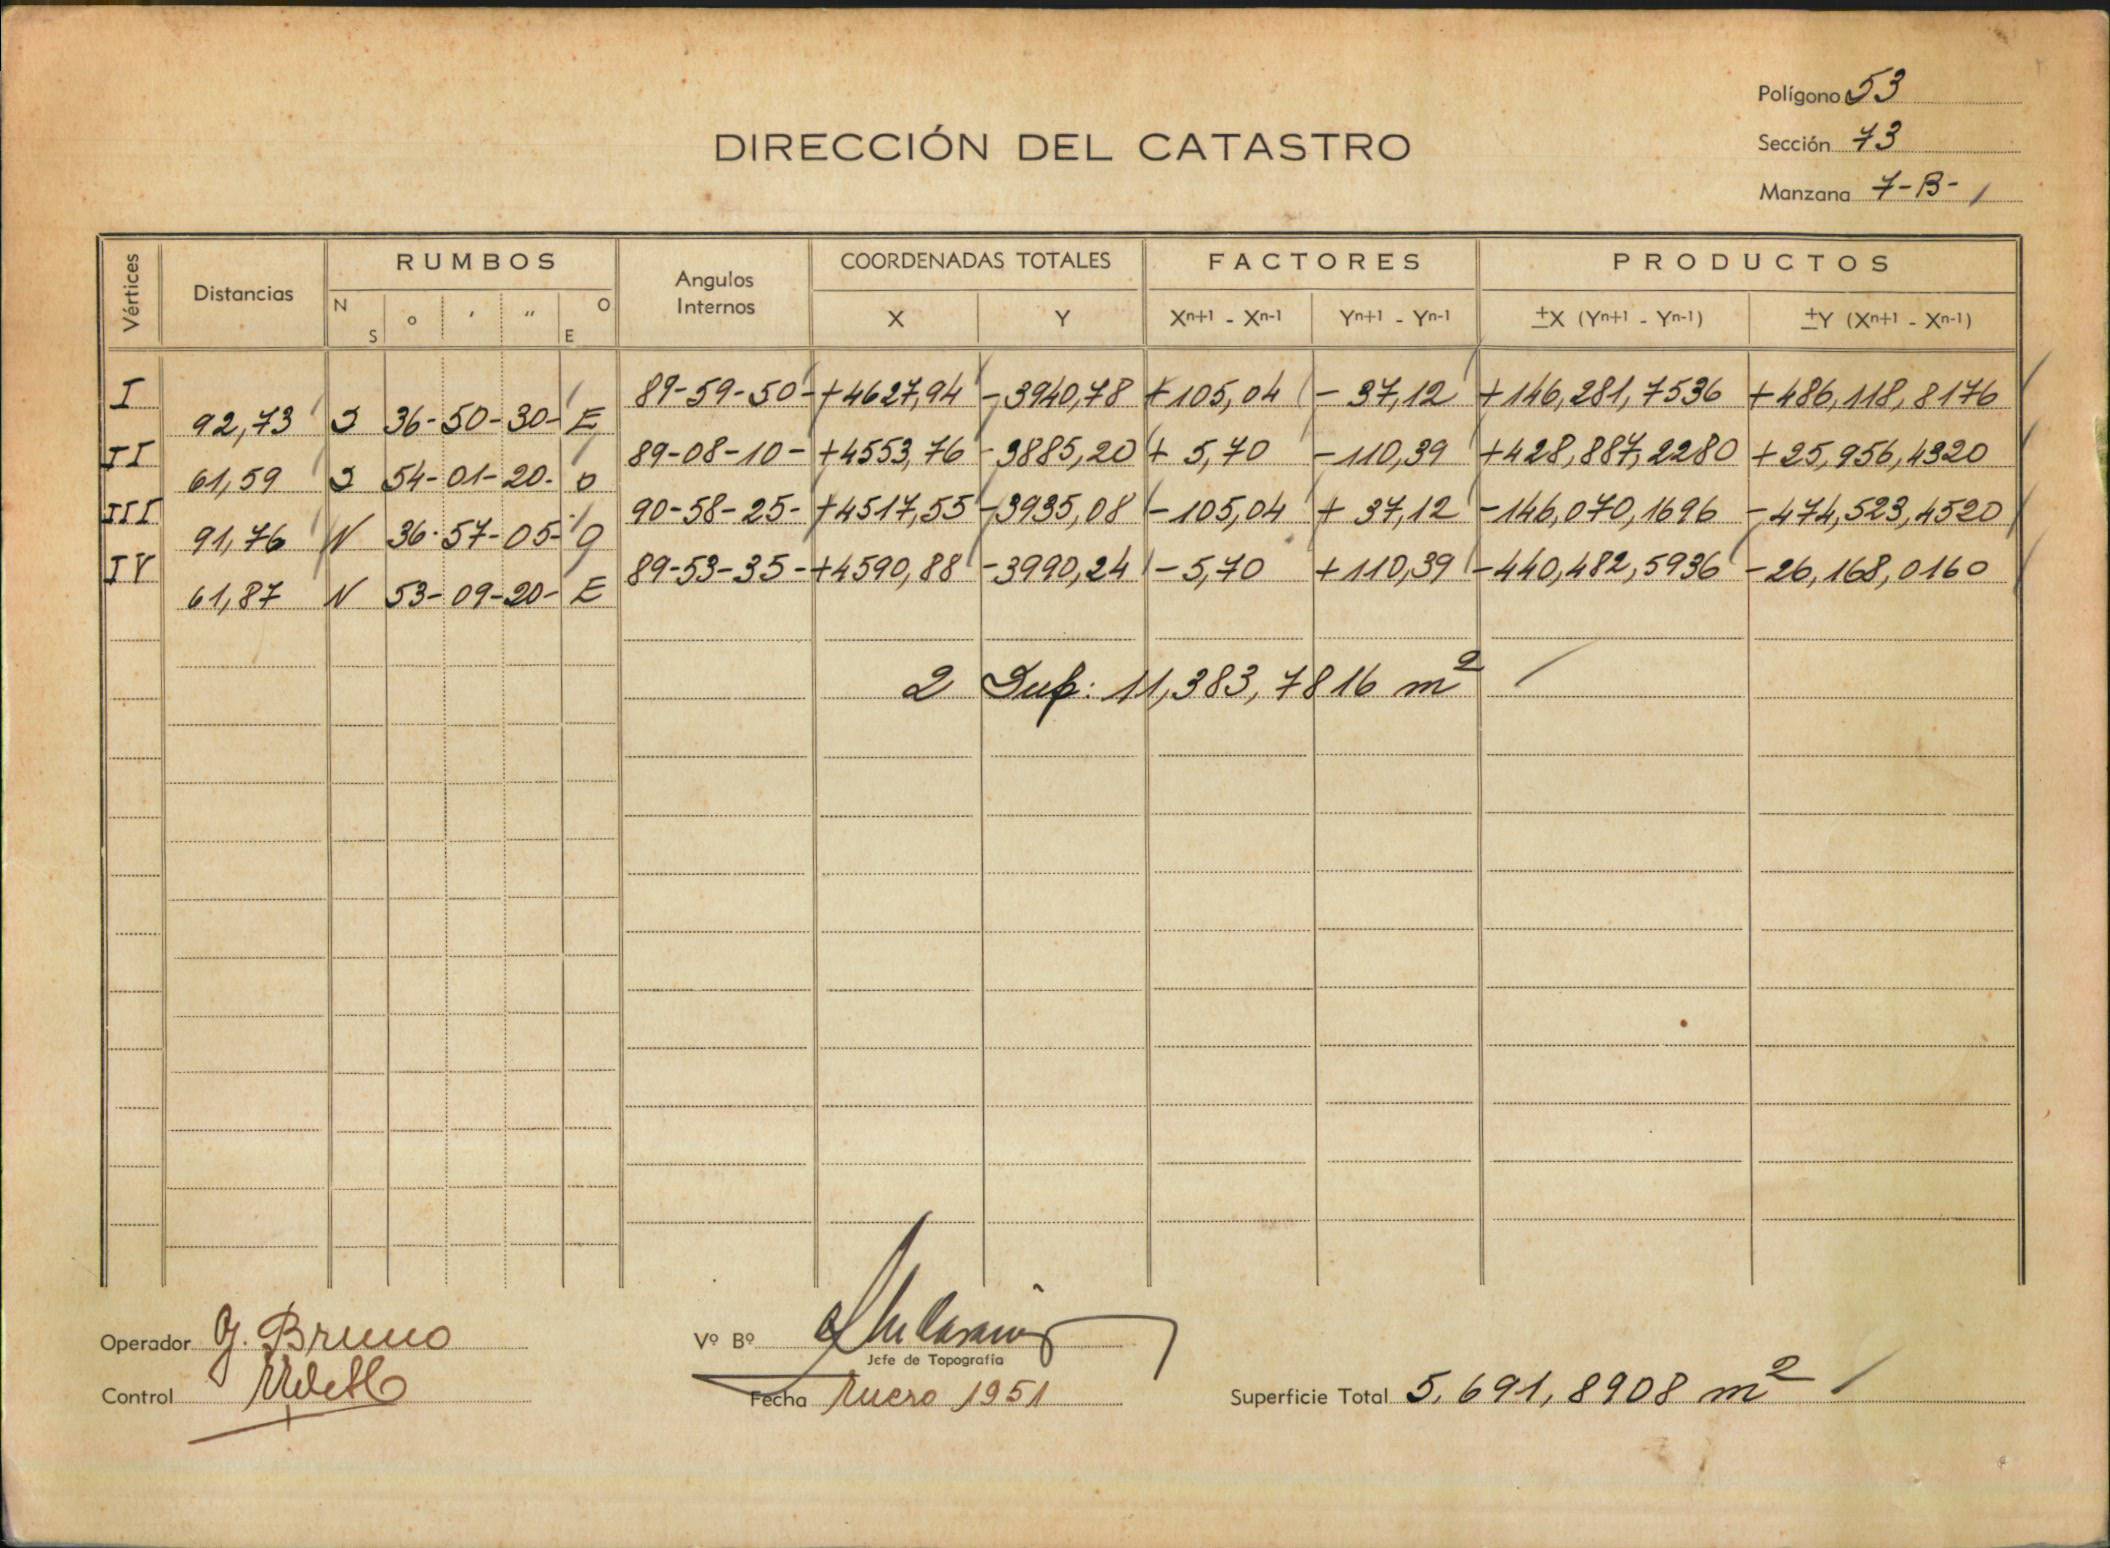 Polígono 53
DIRECCIÓN DEL CATASTRO
Sección 73
Manzana 7-B-
Vértices Distancias RUMBOS Angulos Internos COORDENADAS TOTALES FACTORES PRODUCTOS
N S ° ' " O E X Y Xn+1 - Xn-1 Yn+1 - Yn-1 ±X (Yn+1 - Yn-1) ±Y (Xn+1 - Xn-1)
I 89-59-50- +4627,94 -3940,78 +105,04 -37,12 +146,281,7536 +486,118,8176
92,73 S 36-50-30- E
II 89-08-10- +4553,76 -3885,20 + 5,70 -110,39 +428,887,2280 +25,956,4320
61,59 S 54-01-20- O
III 90-58-25- +4517,55 -3935,08 -105,04 + 37,12 -146,070,1696 -474,523,4520
91,76 N 36-57-05- O
IV 89-53-35- +4590,88 -3990,24 -5,70 +110,39 -440,482,5936 -26,168,0160
61,87 N 53-09-20- E
2 Sup: 11,383,7816 m2
Operador G. Bruno
Vº Bº
Jefe de Topografía
Control
Fecha Enero 1951
Superficie Total 5.691,8908 m2